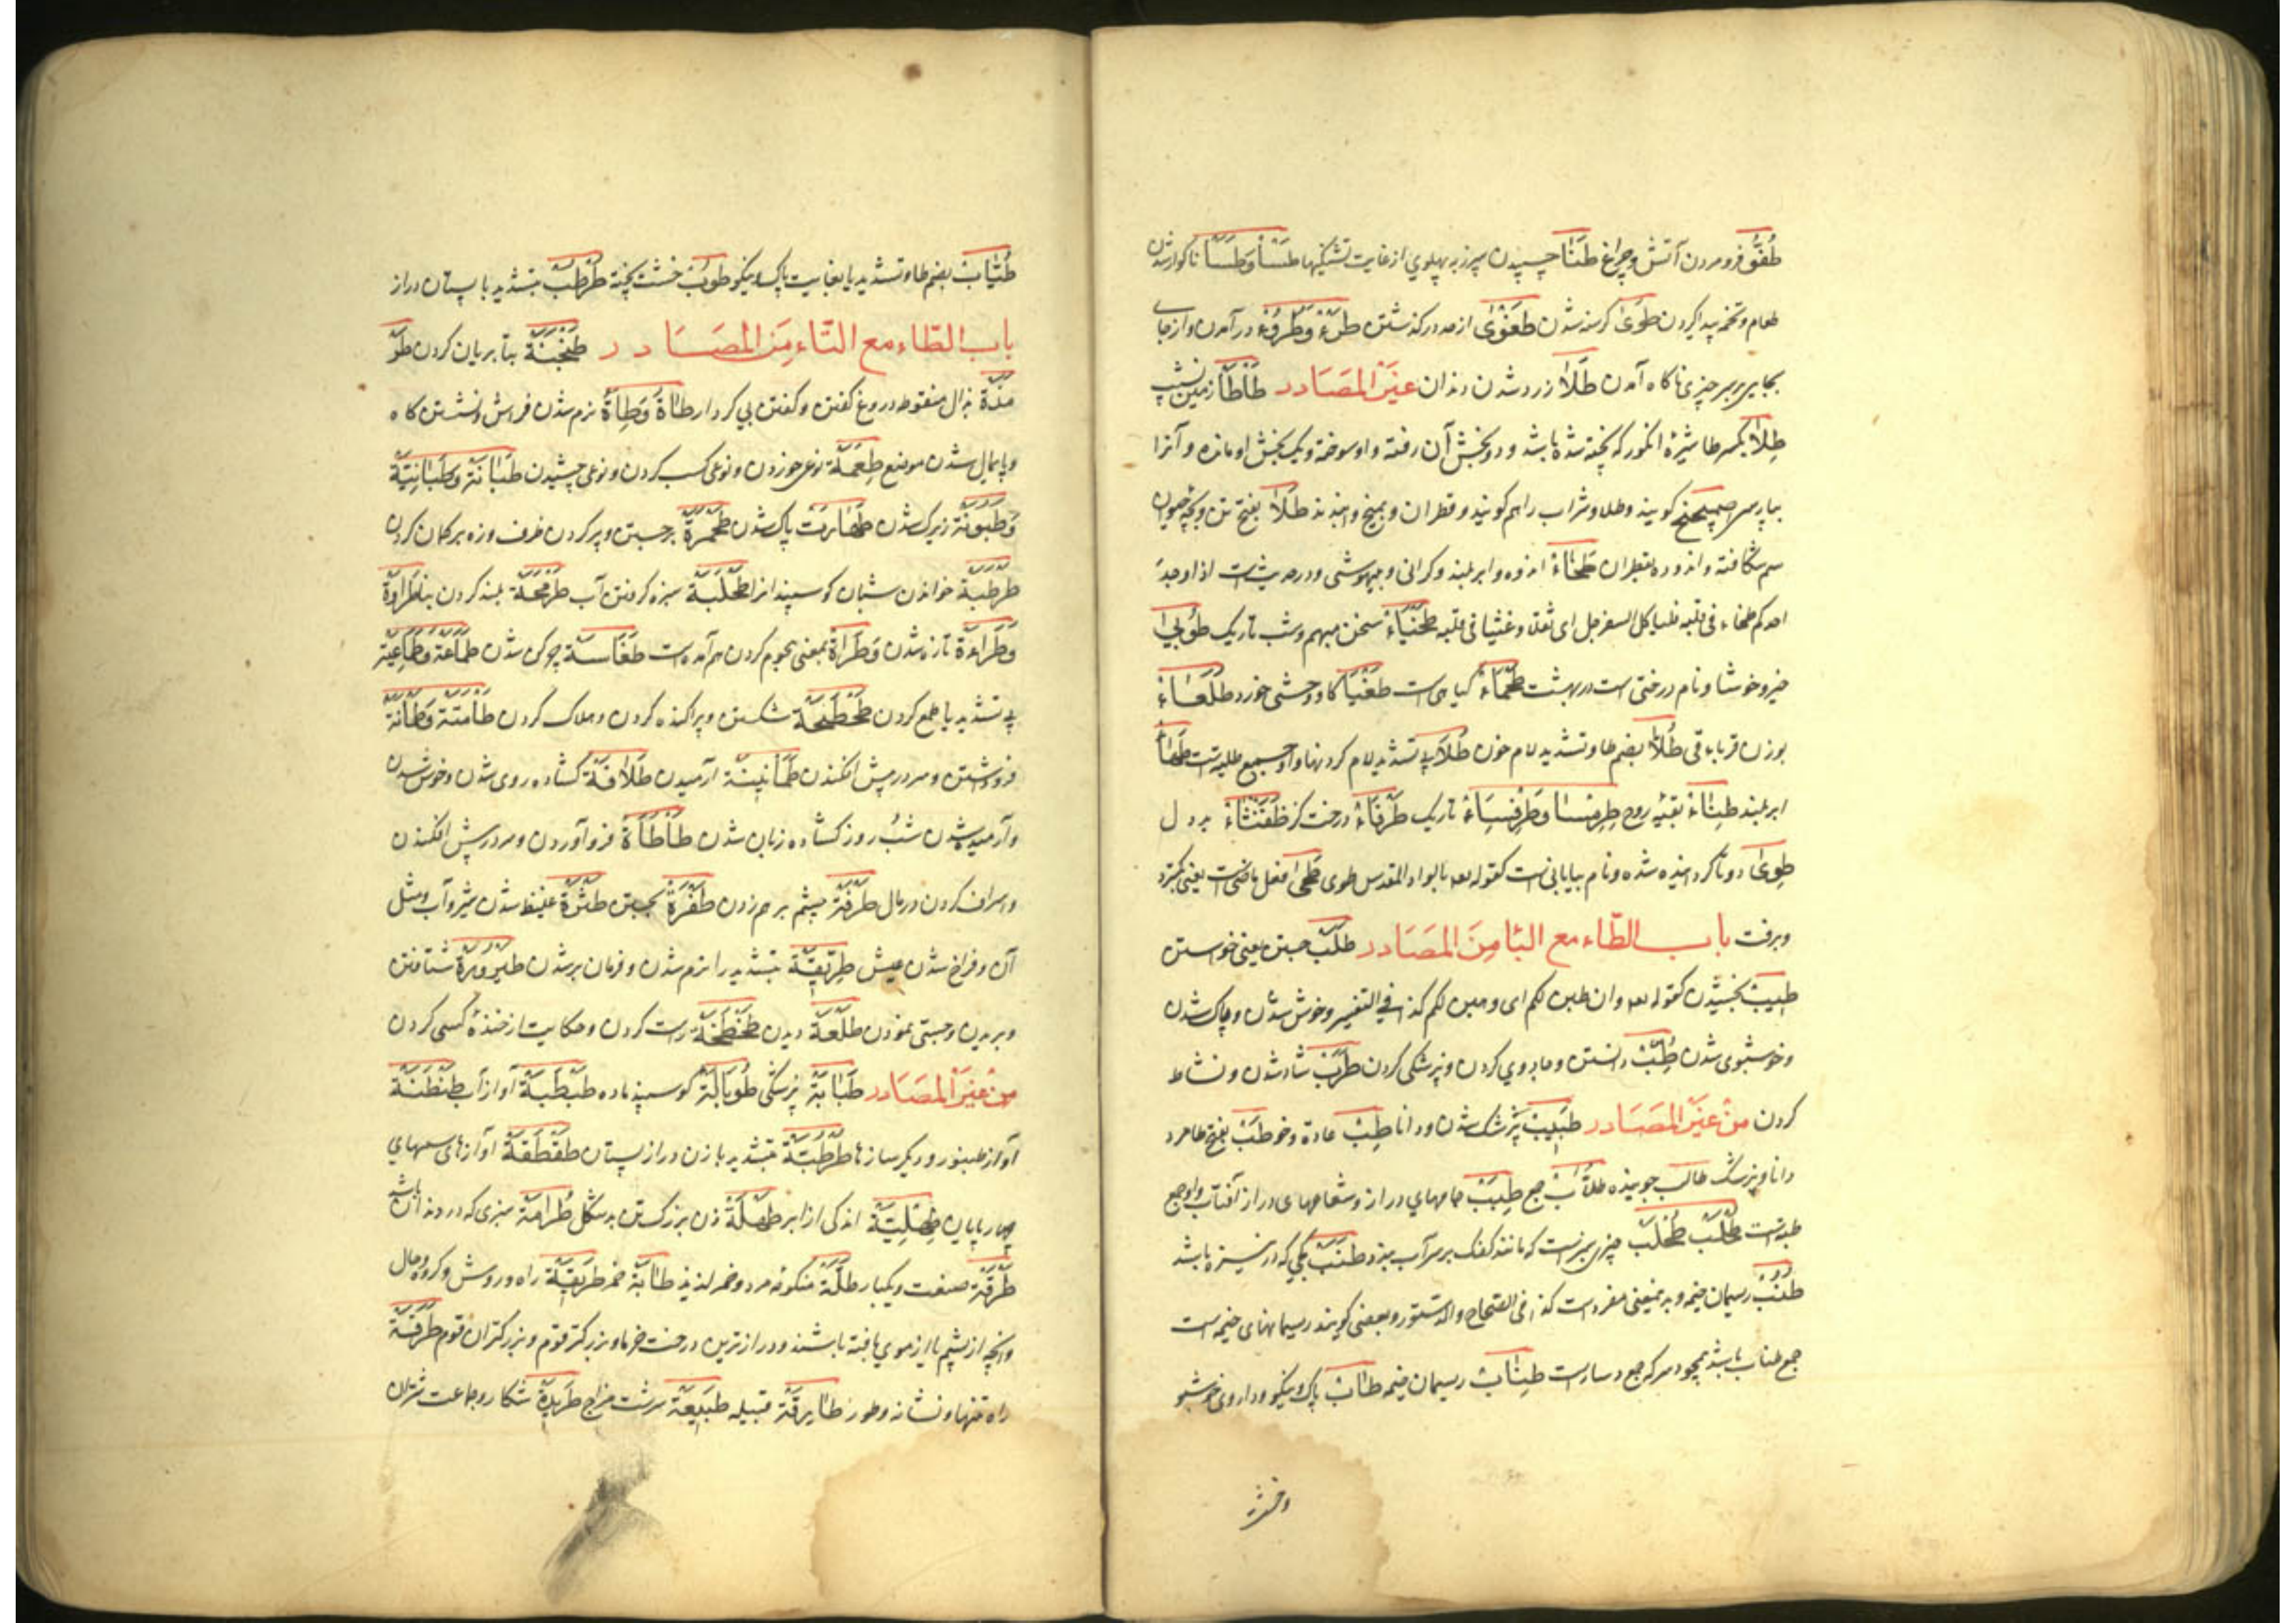 طُفُوّ فرو مردن آتش و چراغ طَنَا چسپیدن سپرز به پهلوی از غایت تشنگیها طَسَأ وَطَسَّأ ناکوارشدن
طعام و تخمه پیدا کردن طَوَیٰ کرسنه شدن طَغْوٰی از حد درکذشتن طَرْء وَطُرُوْء در آمدن و از جای
بجایی بر سر چیزی ناکاه آمدن طَلَا زرد شدن دندان غَیْرُ المَصَادر طَأطَأ زمین نشیب
طِلَا بکسر طا شیرهٔ انکور که پخته شده باشد و دو بخش آن رفته و او سوخته و یک بخش او مانده و آنرا
بپارسی کویند و طلا و شراب را هم کویند و قطران و طَلَا بفتح تن و بچه
سم شکافته و اندوده بقطران طَخَاءْ اندوه و ابر بلند و کرانی و بیهوشی و در حدیثست اذا وجد
احدکم طخاء فی قلبه فلیاکل السفرجل ای ثقلا و غشیا فی قلبه طَخْیَاءْ سخن مبهم و شب تاریک طُوْبٰی
خیر و خوشا و نام درختی است در بهشت طَحْمَاءْ کیاهیست طَغْیَا کاو وحشی خورد طُلَعَاءْ
بوزن قرباء قی طُلَّا بضم طا و تشدید لام خون طُلَا بی تشدید لام کردنها و او جمع طلیه است طَهَا
ابر بلند طِنَاءْ بقیه روح طِرْمِسَا وَطِرْفِسَاءْ تاریک طَرْفَاءْ درخت کز بد دل
طِوَیٰ دو تا کردانیده شده و نام بیابانی است کقوله تعه بالواد المقدس طوی طَحَیٰ فعل ماضیست یعنی بکسترد
وبرفت باب الطّاء مع البَا مِنَ المَصَادر طَلَبْ جستن یعنی خواستن
طِیْبْ بخشیدن کقوله تعه وان طبن لکم ای وهبن لکم کذا فی التفسیر و خوش شدن و پاک شدن
و خوشبوی شدن طِبّْ دانستن و جادویی کردن و پزشکی کردن طَرَبْ شاد شدن و نشاط
کردن مِنْ غَیْرِ المَصَادر طَبِیْبْ پزشک شدن و دانا طِبّْ عادة و خو طَبّْ بفتح طا مرد
دانا و پزشک طَالِبْ جوینده طُلَّابْ جمع طِبَبْ جامهای دراز و شعاعهای دراز آفتاب و او جمع
طبه است طُحْلَبْ طُحْلُبْ چیزی سبزست که مانند کفک بر سر آب خیزد طَنَبْ کجی که در نیزه باشد
طُنُبْ ریسمان خیمه و بدین معنی مفردست کذا فی الصّحاح والدّستور و بعضی کویند ریسمانهای خیمه است
جمع طناب باشد همچو دسر که جمع دسارست طِنَابْ ریسمان خیمه طَابْ پاک و نیکو و داروی خوشبو
و خشت
طُیَّابْ بضم طا و تشدید یا بغایت پاک و نیکو طُوْبْ خشت پخته طُرْطُبّْ بتشدید با پستان دراز
باب الطّاء مع التّاء مِنَ المَصَادر طَنْجَنَةْ بتا بریان کردن
بذال منقوطه دروغ کفتن و کفتن بی کردار طَاءَةْ وَطِاءَةْ نرم شدن فراش و نشستن کاه
و پایمال شدن موضع طِعْمَةْ نوعی خوردن و نوعی کسب کردن و نوعی چشیدن طَبَانَةْ وَطَبَانِیَةْ
وَطُبُوْنَةْ زیرک شدن طَهَارَتْ پاک شدن طَحْمَرَةْ برجستن و پر کردن ظرف و زه بر کمان کردن
طَرْطَبَةْ خواندن شبان کوسپند انرا طَحْلَبَةْ سبزه کرفتن آب طَرْمَحَةْ بلند کردن بنا طَرَاوَةْ
وَطَرَاءَةْ تازه شدن وَطَرَاةْ بمعنی هجوم کردن هم آمده است طَفَاسَةْ چرکن شدن طَمَاعَةْ وَطَمَاعِیَةْ
بی تشدید یا طمع کردن طَحْطَحَةْ شکستن و پراکنده کردن و هلاک کردن
فروشستن و سر در پیش افکندن طُمَأنِیْنَةْ آرمیدن طَلَاقَةْ کشاده روی شدن و خوش شدن
و آرمیده شدن شب و روز کشاده زبان شدن طَأطَأَةْ فرو آوردن و سر در پیش افکندن
و اسراف کردن در مال طَرْفَةْ چشم بر هم زدن طَفْرَةْ بجستن طَثْرَةْ غلیظ شدن شیر و آب و مثل
آن و فراخ شدن عیش طِرِّیْقَةْ بتشدید را نرم شدن و فرمان بر شدن طَیْرُوْرَةْ شتافتن
و پریدن و جستی نمودن طَلْعَةْ دیدن طَخْطَخَةْ راست کردن و حکایت از خندهٔ کسی کردن
مِنْ غَیْرِ المَصَادر طَبَابَةْ پزشکی طُوْبَالَةْ کوسپند ماده طَبْطَبَةْ آواز آب طَنْطَنَةْ
آواز طنبور و دیکر سازها طُرْطُبَّةْ بتشدید با زن دراز پستان طَقْطَقَةْ آوازهای سمهای
چهار پایان طِهْلِیَةْ اندکی از ابر طَهْمَلَةْ زن بزرک تن بد شکل طُرَامَةْ سبزی که در دندان باشد
طَرْقَةْ صنعت و یکبار طَلَّةْ منکوحه مرد و خمر لذیذ طَابَةْ خمر طَرِیْقَةْ راه و روش و کروه و حال
و آنچه از پشم یا از موی بافته باشند و درازترین درخت خرما و بزرکتر قوم و بزرکتران قوم طُرْقَةْ
راه تنها و نشانه و طور طَائِفَةْ قبیله طَبِیْعَةْ سرشت مزاج طَرِیْدَةْ شکار و جماعت شتران